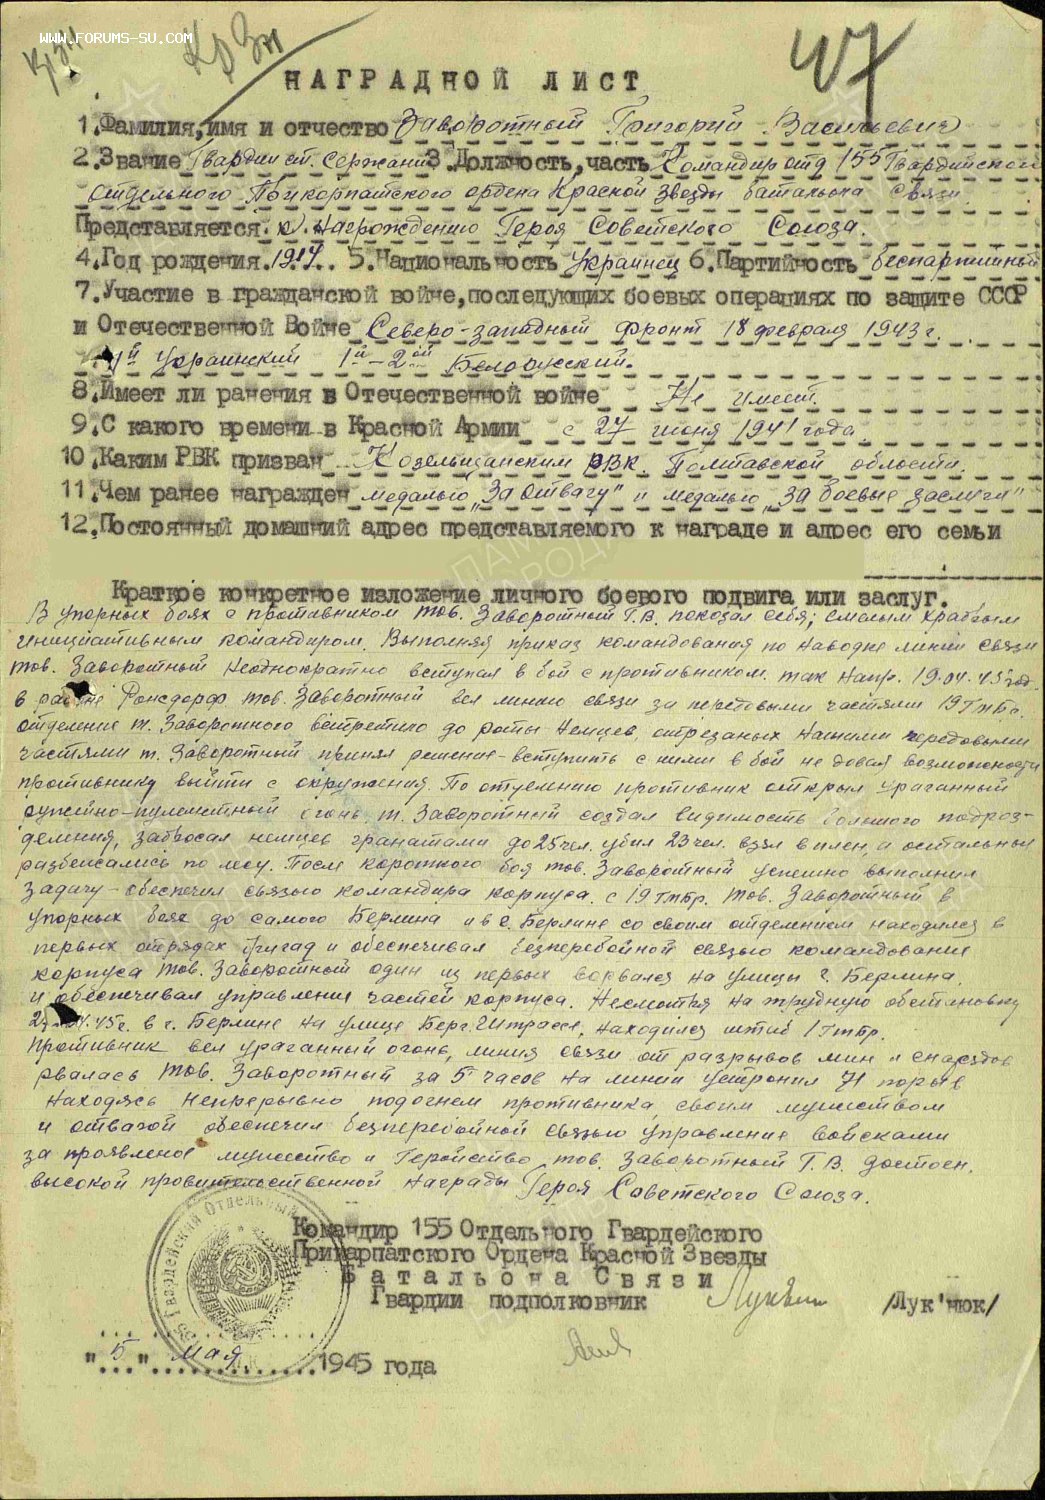 WWW.FORUMS-SU.COM
47
НАГРАДНОЙ ЛИСТ
1.Фамилия,имя и отчество Заворотный Григорий Васильевич
2.Звание Гвардии ст. Сержант 3.Должность,часть Командир отд 155 Гвардейского
отдельного Прикарпатского ордена Красной Звезды батальона Связи
Представляется к Награждению Героя Советского Союза.
4.Год рождения 1917. 5.Национальность Украинец 6.Партийность беспартийный
7.Участие в гражданской войне,последующих боевых операциях по защите СССР
и Отечественной Войне Северо-западный фронт 18 февраля 1943 г.
Украинский 1й-2ой Белорусский.
8.Имеет ли ранения в Отечественной войне Не имеет
9.С какого времени в Красной Армии с 27 июня 1941 года
10.Каким РВК призван Козельщанским РВК. Полтавской области.
11.Чем ранее награжден медалью „За отвагу" и медалью „За боевые заслуги"
12.Постоянный домашний адрес представляемого к награде и адрес его семьи
Краткое конкретное изложение личного боевого подвига или заслуг.
В упорных боях с противником тов. Заворотный Г.В. показал себя, смелым храбрым
инициативным командиром. Выполняя приказ командования по наводке линии связи
тов. Заворотный неоднократно вступал в бой с противником. так напр. 19.04.45 год.
в районе Ронсдорф тов. Заворотный вел линию связи за передовыми частями 19 Гтбр.
отделение т. Заворотного встретило до роты Немцев, отрезаных Нашими передовыми
частями т. Заворотный принял решение-вступить с ними в бой не довая возможности
противнику выйти с окружения. По отделению противник открыл ураганный
ружейно-пулеметный огонь. т. Заворотный создал видимость большого подраз-
деления, забросал немцев гранатами до 25 чел. убил 23 чел. взял в плен, а остальные
разбежались по лесу. После короткого боя тов. Заворотный успешно выполнил
задачу-обеспечил связью командира корпуса. с 19 Гтбр. тов. Заворотный в
упорных боях до самого Берлина и в г. Берлине со своим отделением находился в
первых отрядах бригад и обеспечивал безперебойной связью командование
корпуса тов. Заворотный один из первых ворвался на улицы г. Берлина.
и обеспечивал управление частей корпуса. Несмотря на трудную обстановку
45г. в г. Берлине на улице Берг. Штрассе, находился штаб 1 Гтбр.
Противник вел ураганный огонь, линия связи от разрывов мин и снарядов
рвалась тов. Заворотный за 5 часов на линии устронил 71 порыв
находясь непрерывно под огнем противника, своим мужеством
и отвагой обеспечил безперебойной связью управление войсками
за проявленое мужество и Геройство тов. Заворотный Г.В. достоен.
высокой провительственной награды Героя Советского Союза.
Командир 155 Отдельного Гвардейского
Прикарпатского Ордена Красной Звезды
Батальона Связи
Гвардии подполковник /Лук'нюк/
"5" мая 1945 года